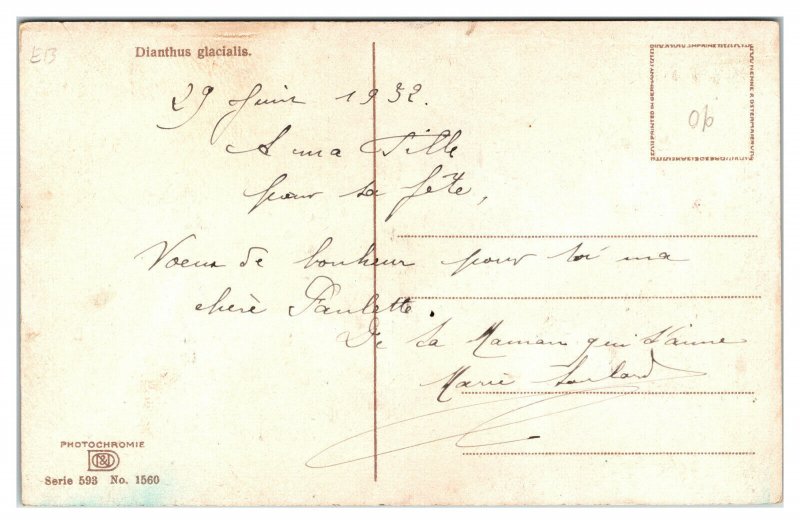 E13
Dianthus glacialis.
29 Juin 1932.
A ma Fille
pour sa fête,
Voeux de bonheur pour toi ma
chère Paulette.
De ta Maman qui t'aime
Marie
PHOTOCHROMIE
Serie 593 No. 1560